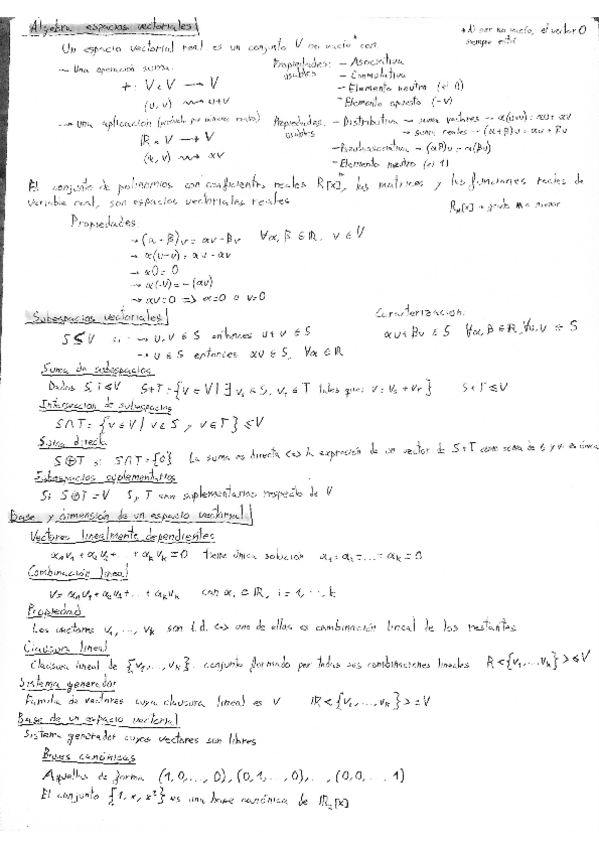 Álgebra: espacios vectoriales
* Al ser no vacío, el vector 0 siempre está
Un espacio vectorial real es un conjunto V no vacío* con
→ Una operación suma:
+: V x V → V
(u, v) ⇝ u+v
Propiedades usables: - Asociativa
- Conmutativa
- Elemento neutro (el 0)
- Elemento opuesto (-v)
→ Una aplicación (producto por números reales)
ℝ x V → V
(α, v) ⇝ αv
Propiedades usables: - Distributiva → suma vectores → α(u+v) = αu + αv
→ suma reales → (α+β)u = αu + βu
- Pseudoasociativa → (αβ)u = α(βu)
- Elemento neutro (el 1)
El conjunto de polinomios con coeficientes reales ℝ[x]*, las matrices y las funciones reales de
variable real, son espacios vectoriales reales
ℝₙ[x] → grado n o menor
Propiedades
→ (α-β)v = αv-βv ∀α, β ∈ ℝ, v ∈ V
→ α(u-v) = αu-αv
→ α0 = 0
→ α(-v) = -(αv)
→ αv=0 => α=0 o v=0
Subespacios vectoriales
Caracterización:
S ≤ V si → u, v ∈ S entonces u+v ∈ S
αu+βv ∈ S ∀α, β ∈ ℝ, ∀u, v ∈ S
→ u ∈ S entonces αu ∈ S, ∀α ∈ ℝ
Suma de subespacios
Dados S, T ≤ V S+T = {v ∈ V | ∃ v₁ ∈ S, v₂ ∈ T tales que: v = v₁ + v₂} S+T ≤ V
Intersección de subespacios
S∩T = {v ∈ V | v ∈ S y v ∈ T} ≤ V
Suma directa
S⊕T si S∩T = {0} La suma es directa <=> la expresión de un vector de S+T como suma de S y T es única
Subespacios suplementarios
Si S⊕T = V S y T son suplementarios respecto de V
Base y dimensión de un espacio vectorial
Vectores linealmente dependientes
α₁v₁ + α₂v₂ + ... + αₖvₖ = 0 tiene única solución α₁ = α₂ = ... = αₖ = 0
Combinación lineal
V = α₁v₁ + α₂v₂ + ... + αₖvₖ con αᵢ ∈ ℝ, i = 1, ..., k
Propiedad
Los vectores v₁, ..., vₖ son l.d. <=> uno de ellos es combinación lineal de los restantes
Clausura lineal
Clausura lineal de {v₁, ..., vₖ}: conjunto formado por todas sus combinaciones lineales ℝ<{v₁, ..., vₖ}> ≤ V
Sistema generador
Familia de vectores cuya clausura lineal es V ℝ<{v₁, ..., vₖ}> = V
Base de un espacio vectorial
Sistema generador cuyos vectores son libres
Bases canónicas
Aquellas de forma (1, 0, ..., 0), (0, 1, ..., 0), ..., (0, 0, ..., 1)
El conjunto {1, x, x²} es una base canónica de ℝ₂[x]